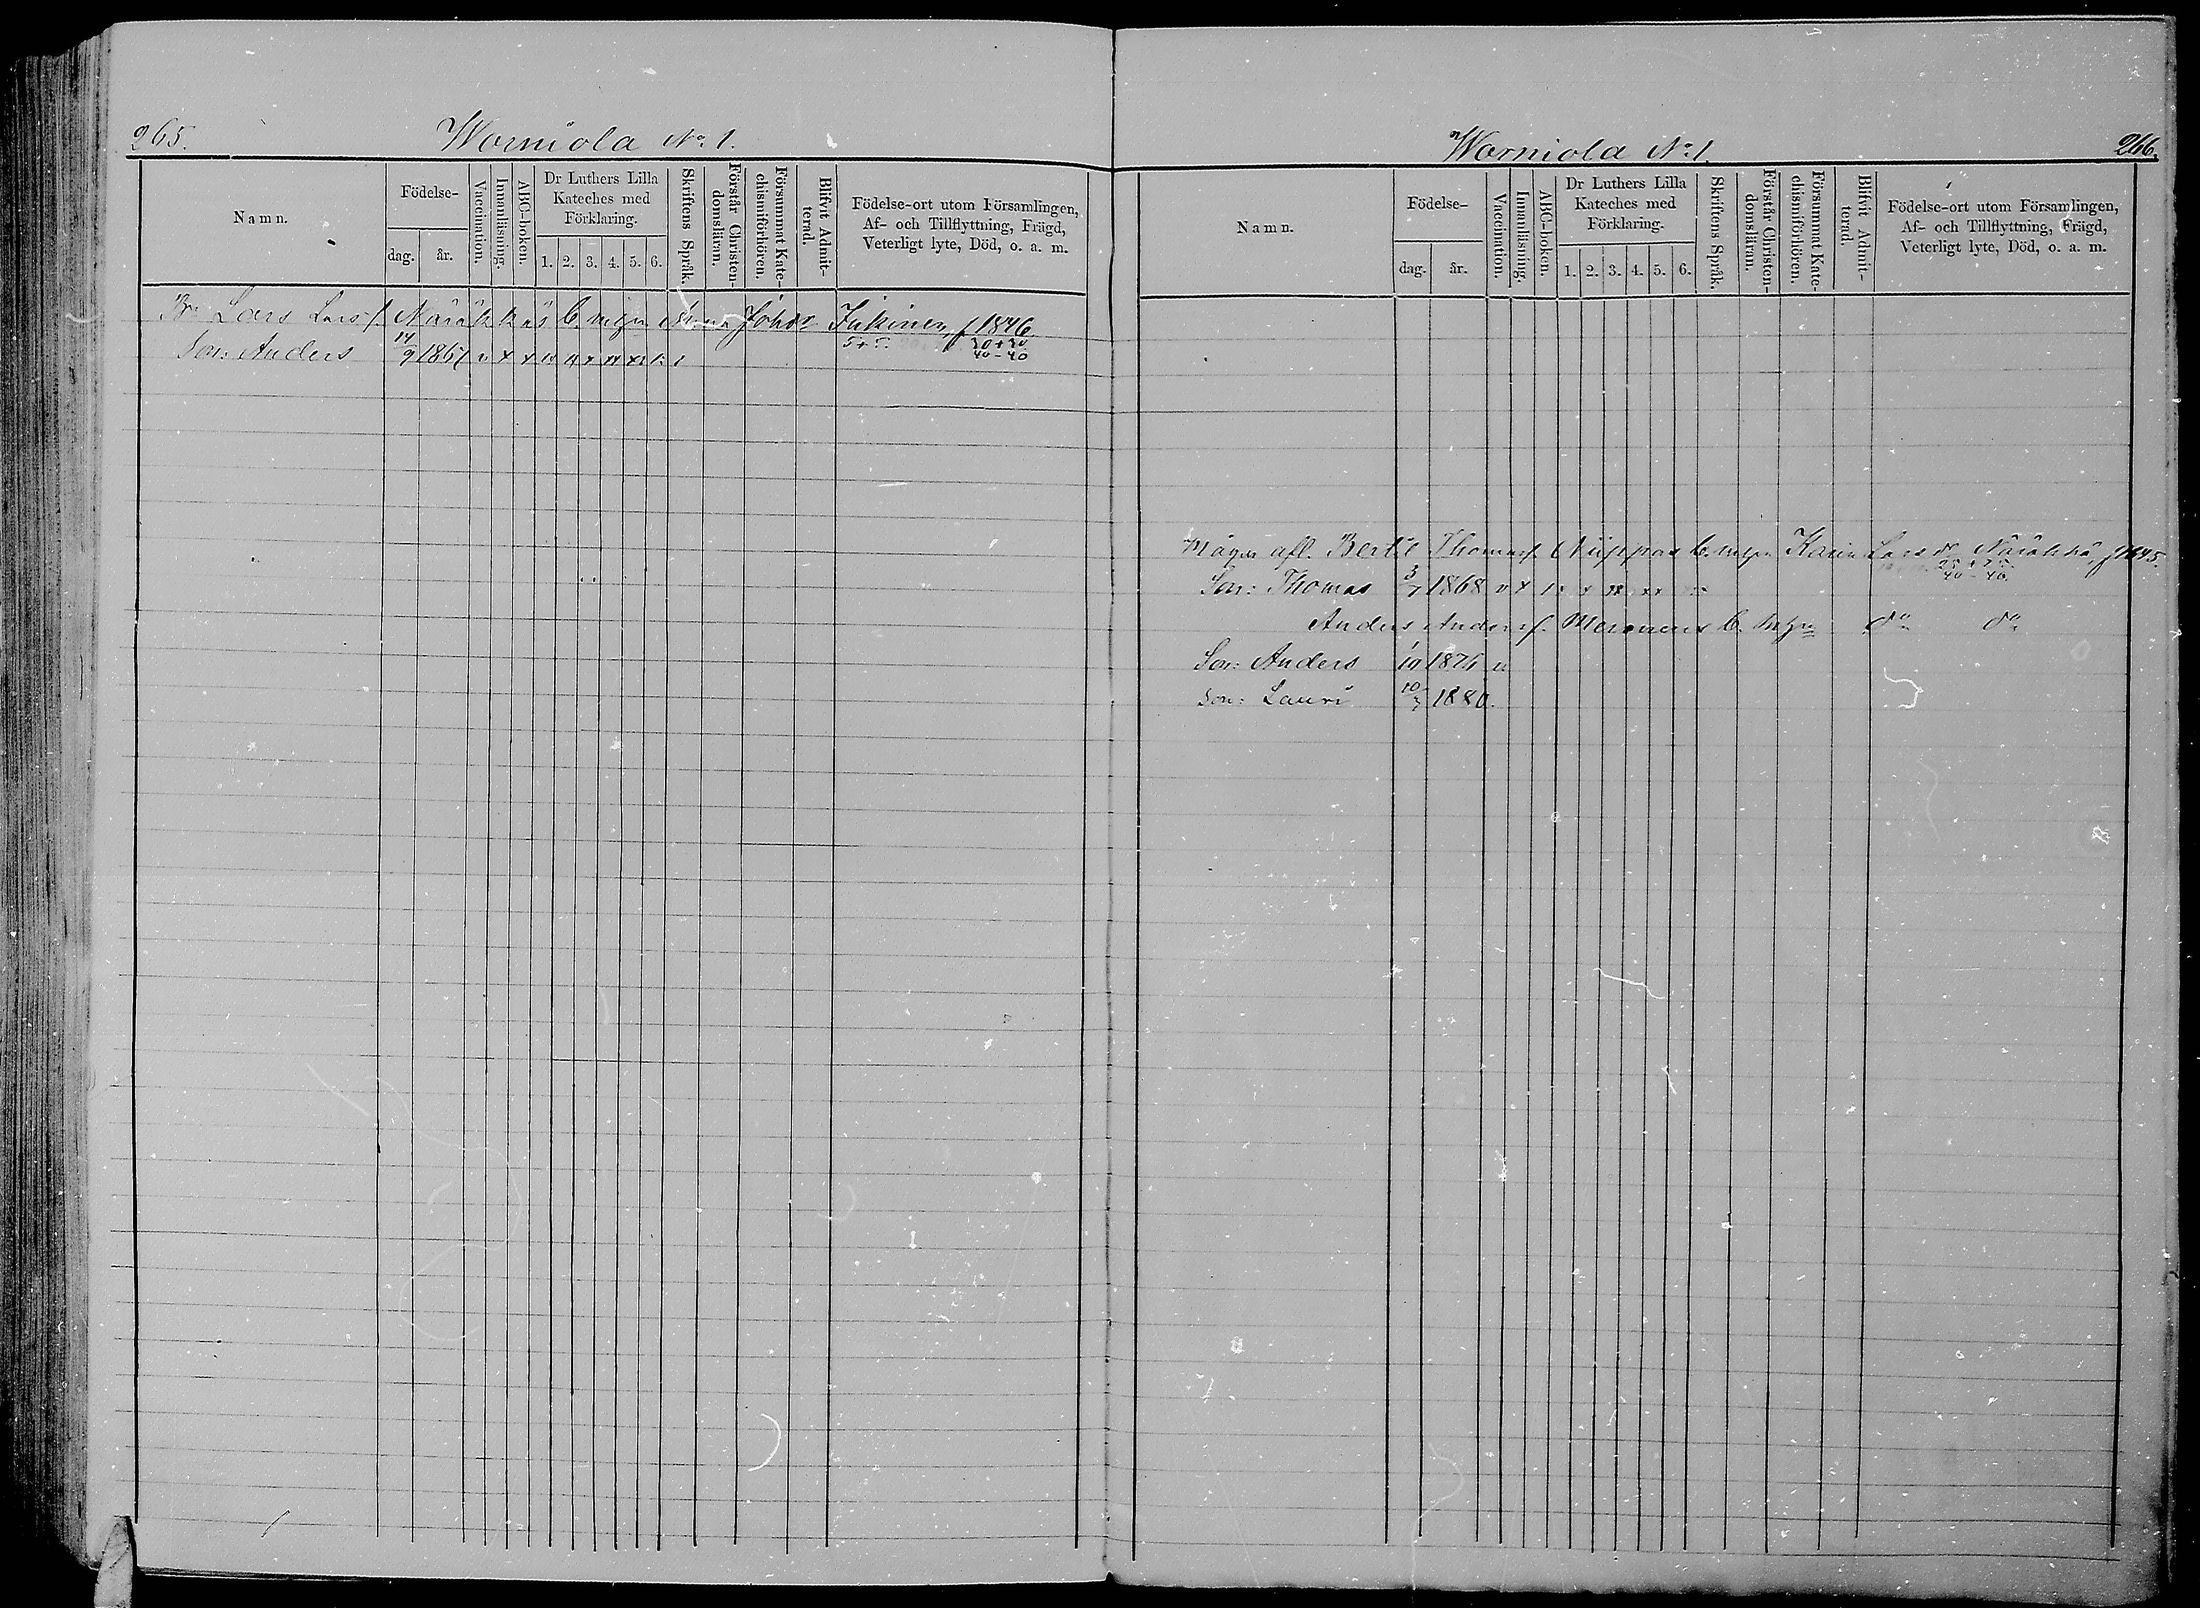 265.
Worniola No 1.
Namn.
Födelse-
dag.
år.
Vaccination.
Innanläsning.
ABC-boken.
Dr Luthers Lilla
Kateches med
Förklaring.
1. 2. 3. 4. 5. 6.
Skriftens Språk.
Förstår Christen-
domsläran.
Försummat Kate-
chismiförhören.
Blifvit Admit-
terad.
Födelse-ort utom Församlingen,
Af- och Tillflyttning, Frägd,
Veterligt lyte, Död, o. a. m.
Br. Lars Larsf. Näräkkäs b. m. Anna Johdr Inkinen, f 1846
5+5. 20+20
Son: Anders 14/9 1867 v x x
40-40
Worniola No 1.
266.
Namn.
Födelse-
dag.
år.
Vaccination.
Innanläsning.
ABC-boken.
Dr Luthers Lilla
Kateches med
Förklaring.
1. 2. 3. 4. 5. 6.
Skriftens Språk.
Förstår Christen-
domsläran.
Försummat Kate-
chismiförhören.
Blifvit Admit-
terad.
Födelse-ort utom Församlingen,
Af- och Tillflyttning, Frägd,
Veterligt lyte, Död, o. a. m.
Mågen afl. Bertil Thomasf. Nuppas b. m. Karin Larsdr Näräkkä, f 1845.
25+25.
40-40.
Son: Thomas 3/7 1868 v x
Anders Andersf. Meronens b. do do
Son: Anders 1/10 1875 v.
Son: Lauri 10/7 1880.